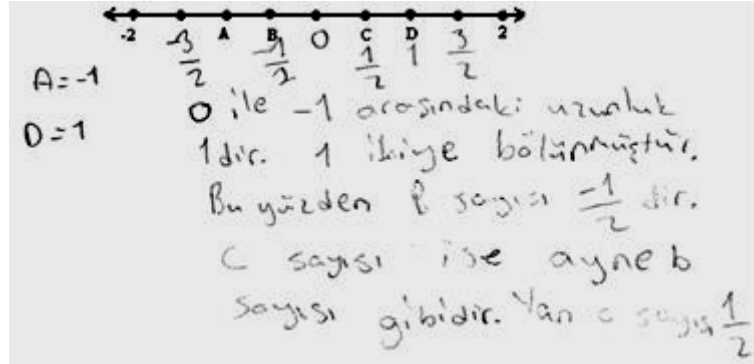 -2 A B C D 2
-3/2 -1/2 0 1/2 1 3/2
A = -1
0 ile -1 arasındaki uzunluk
D = 1
1 dir. 1 ikiye bölünmüştür.
Bu yüzden B sayısı -1/2 dir.
C sayısı ise ayne b
sayısı gibidir. Yan c sayısı 1/2